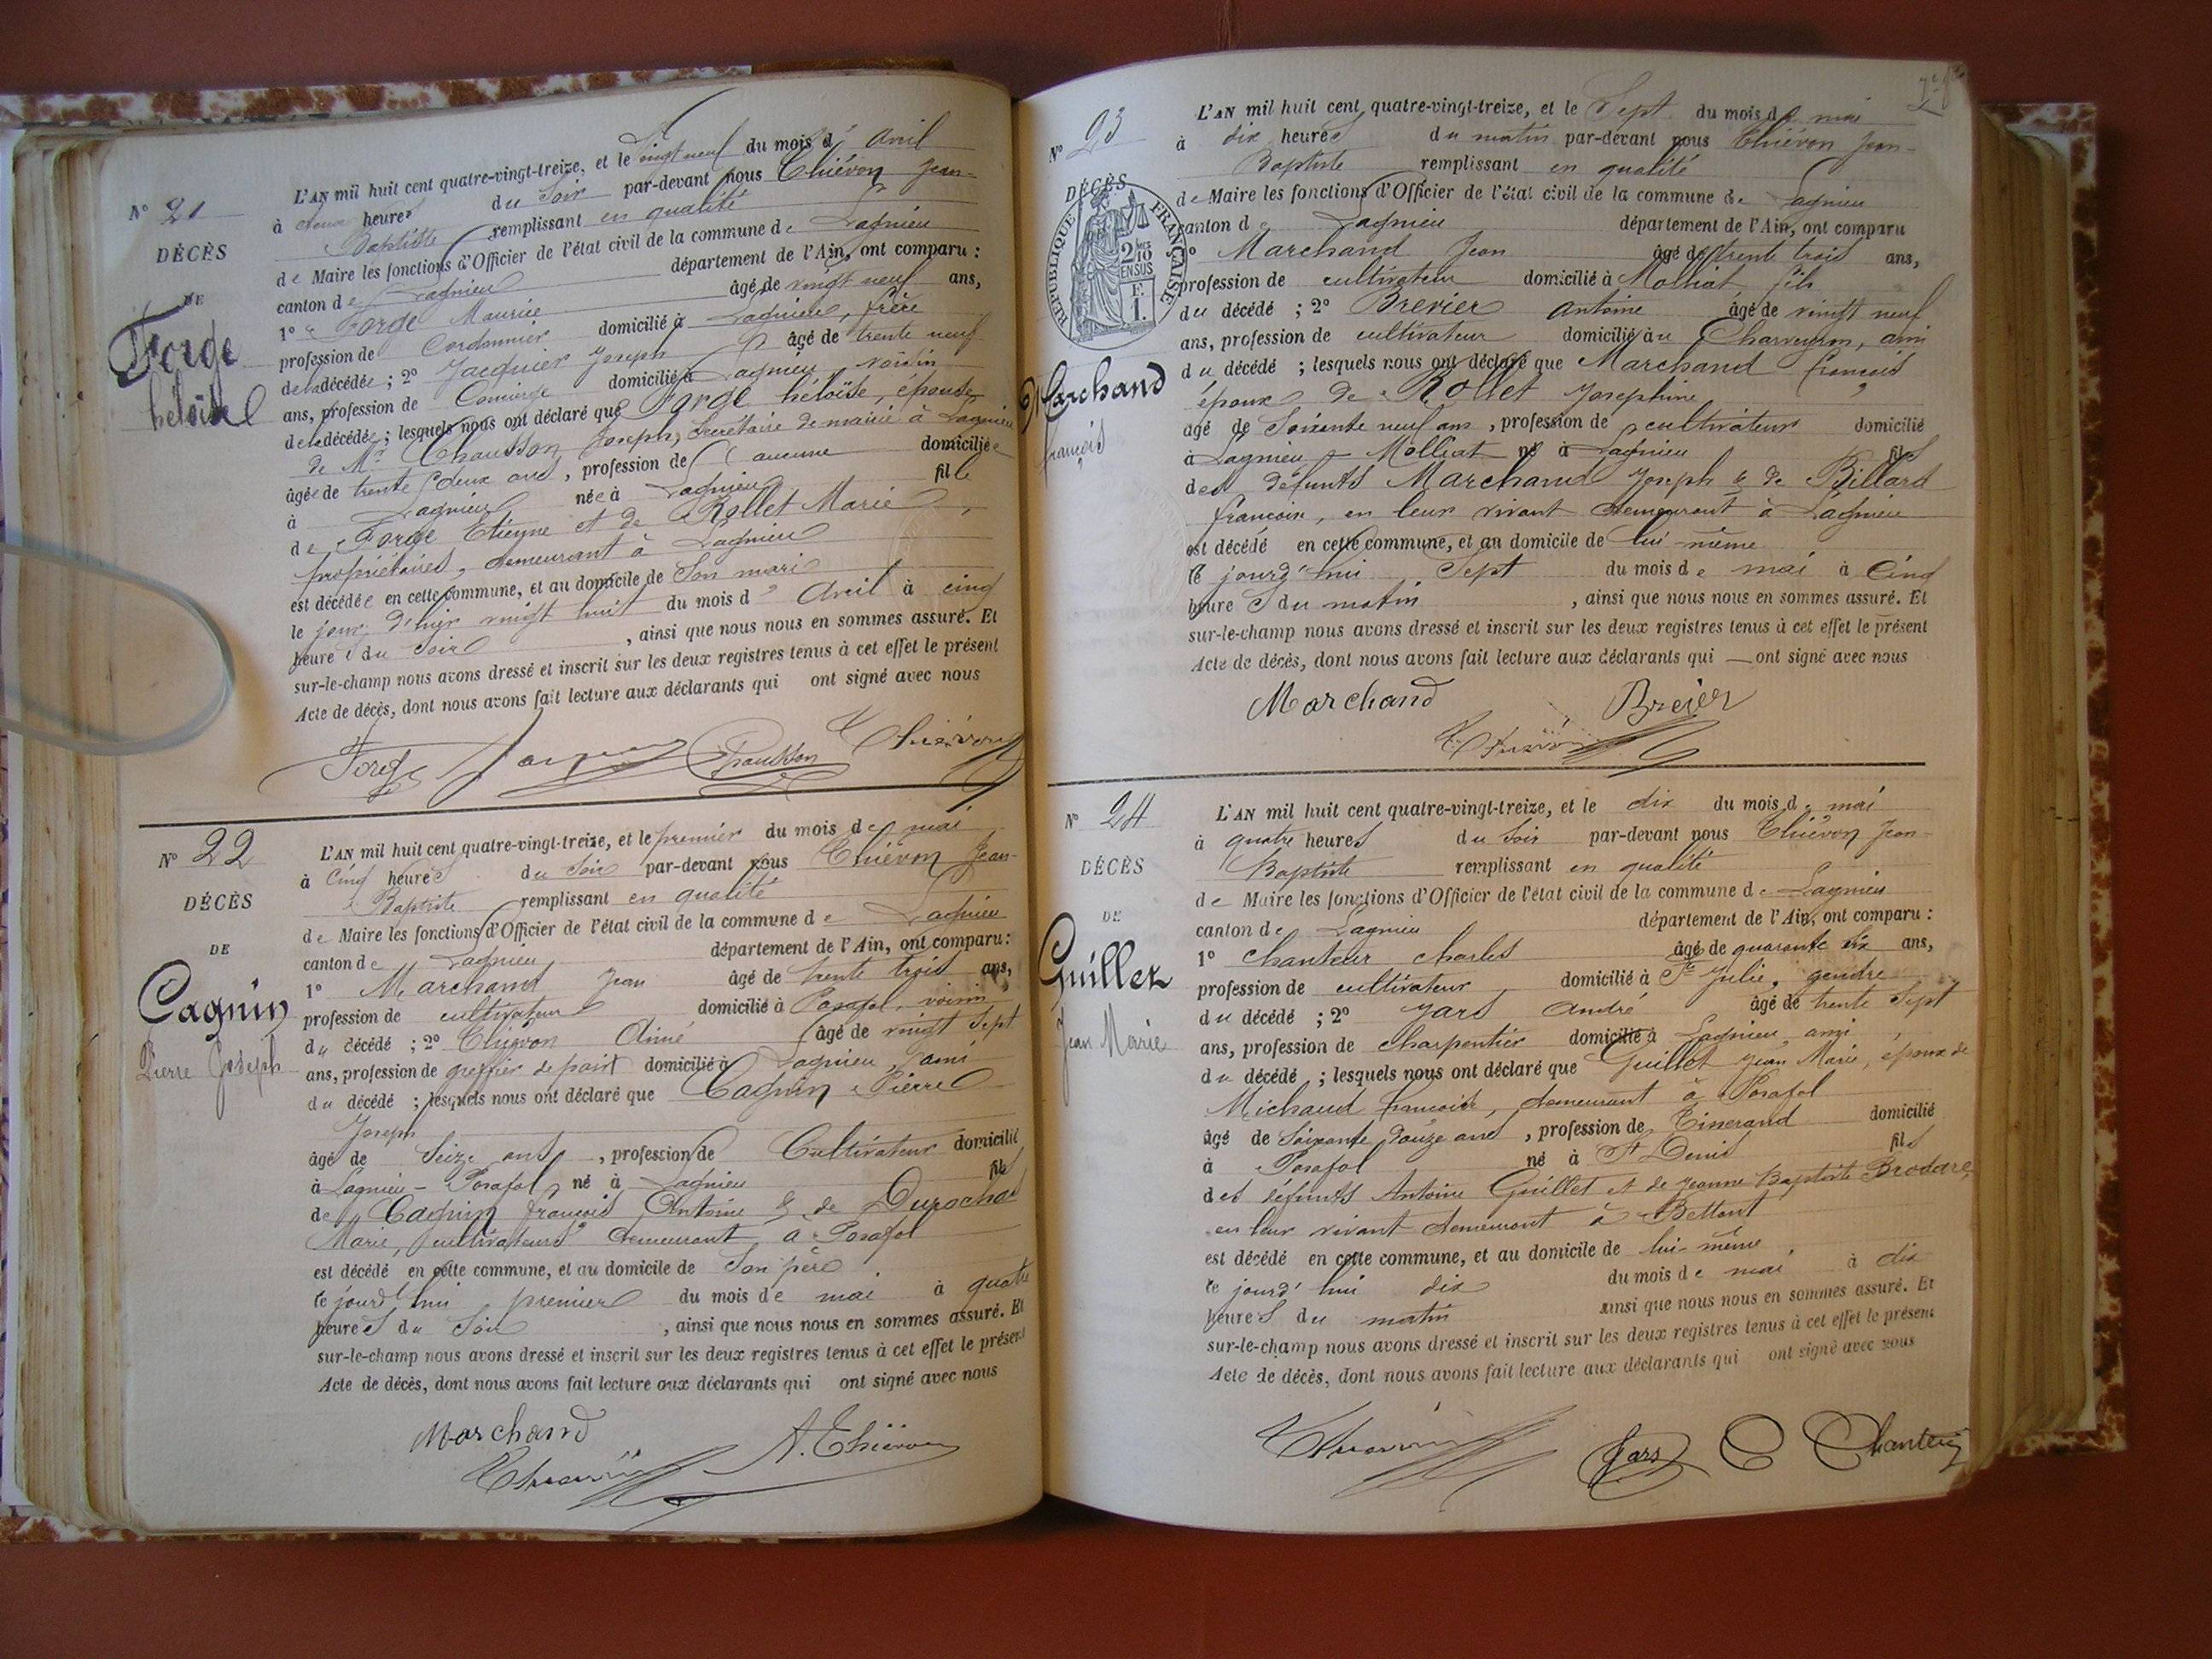 N° 21
DÉCÈS
DE
Forge
héloïse
L'AN mil huit cent quatre-vingt-treize, et le vingt neuf du mois d' Avril
à deux heures du Soir par-devant nous Thiévon Jean-
Baptiste remplissant en qualité
de Maire les fonctions d'Officier de l'état civil de la commune de Lagnieu
canton de Lagnieu département de l'Ain, ont comparu :
1° Forge Maurice âgé de vingt neuf ans,
profession de Cordonnier domicilié à Lagnieu, frère
de la décédée ; 2° Jacquier Joseph âgé de trente neuf
ans, profession de Concierge domicilié à Lagnieu, voisin
de la décédée ; lesquels nous ont déclaré que Forge héloïse, épouse
de Mr Chausson Joseph, Secrétaire de mairie à Lagnieu
âgée de trente deux ans, profession de aucune domiciliée
à Lagnieu née à Lagnieu fille
de Forge Etienne et de Rollet Marie,
propriétaires, demeurant à Lagnieu
est décédée en cette commune, et au domicile de Son mari
le jour d'hier vingt huit du mois d' Avril à cinq
heures du Soir, ainsi que nous nous en sommes assuré. Et
sur-le-champ nous avons dressé et inscrit sur les deux registres tenus à cet effet le présent
Acte de décès, dont nous avons fait lecture aux déclarants qui ont signé avec nous
Forge Jacquier Chausson Thiévon
N° 22
DÉCÈS
DE
Cagnin
Pierre Joseph
L'AN mil huit cent quatre-vingt-treize, et le premier du mois de mai
à Cinq heures du Soir par-devant nous Thiévon Jean-
Baptiste remplissant en qualité
de Maire les fonctions d'Officier de l'état civil de la commune de Lagnieu
canton de Lagnieu département de l'Ain, ont comparu :
1° Marchand Jean âgé de trente trois ans,
profession de cultivateur domicilié à Posafol, voisin
du décédé ; 2° Thiévon Aimé âgé de vingt Sept
ans, profession de greffier de paix domicilié à Lagnieu, ami
du décédé ; lesquels nous ont déclaré que Cagnin Pierre
Joseph
âgé de Seize ans, profession de Cultivateur domicilié
à Lagnieu - Posafol, né à Lagnieu fils
de Cagnin françois Antoine & de Durochat
Marie, cultivateurs demeurant à Posafol
est décédé en cette commune, et au domicile de Son père
le jourd'hui premier du mois de mai à quatre
heures du Soir, ainsi que nous nous en sommes assuré. Et
sur-le-champ nous avons dressé et inscrit sur les deux registres tenus à cet effet le présent
Acte de décès, dont nous avons fait lecture aux déclarants qui ont signé avec nous
Marchand
Thiévon A. Thiévon
N° 23
DÉCÈS
RÉPUBLIQUE FRANÇAISE
2/10 EN SUS
F.
1.
Marchand
françois
L'AN mil huit cent quatre-vingt-treize, et le Sept du mois de mai
à dix heures du matin par-devant nous Thiévon Jean-
Baptiste remplissant en qualité
de Maire les fonctions d'Officier de l'état civil de la commune de Lagnieu
canton de Lagnieu département de l'Ain, ont comparu
1° Marchand Jean âgé de trente trois ans,
profession de cultivateur domicilié à Molliat fils
du décédé ; 2° Brevier Antoine âgé de vingt neuf
ans, profession de cultivateur domicilié au Charveyron, ami
du décédé ; lesquels nous ont déclaré que Marchand françois
époux de Rollet Josephine,
âgé de Soixante neuf ans, profession de cultivateur domicilié
à Lagnieu - Molliat né à Lagnieu fils
des défunts Marchand Joseph & de Billard
françoise, en leur vivant demeurant à Lagnieu
est décédé en cette commune, et au domicile de lui-même
le jourd'hui Sept du mois de mai à Cinq
heures du matin, ainsi que nous nous en sommes assuré. Et
sur-le-champ nous avons dressé et inscrit sur les deux registres tenus à cet effet le présent
Acte de décès, dont nous avons fait lecture aux déclarants qui — ont signé avec nous
Marchand Brevier
Thiévon
N° 24
DÉCÈS
DE
Guillet
Jean Marie
L'AN mil huit cent quatre-vingt-treize, et le dix du mois de mai
à quatre heures du Soir par-devant nous Thiévon Jean-
Baptiste remplissant en qualité
de Maire les fonctions d'Officier de l'état civil de la commune de Lagnieu
canton de Lagnieu département de l'Ain, ont comparu :
1° Chanteur Charles âgé de quarante six ans,
profession de cultivateur domicilié à Ste Julie, gendre
du décédé ; 2° Jars André âgé de trente Sept
ans, profession de charpentier domicilié à Lagnieu, ami
du décédé ; lesquels nous ont déclaré que Guillet Jean Marie, époux de
Michaud françoise, demeurant à Posafol
âgé de Soixante douze ans, profession de Tisserand domicilié
à Posafol né à St Denis fils
des défunts Antoine Guillet et de Jeanne Baptiste Brodare,
en leur vivant demeurant à Bettant
est décédé en cette commune, et au domicile de lui-même
le jourd'hui dix du mois de mai à dix
heures du matin ainsi que nous nous en sommes assuré. Et
sur-le-champ nous avons dressé et inscrit sur les deux registres tenus à cet effet le présent
Acte de décès, dont nous avons fait lecture aux déclarants qui ont signé avec nous
Thiévon Jars C Chanteur